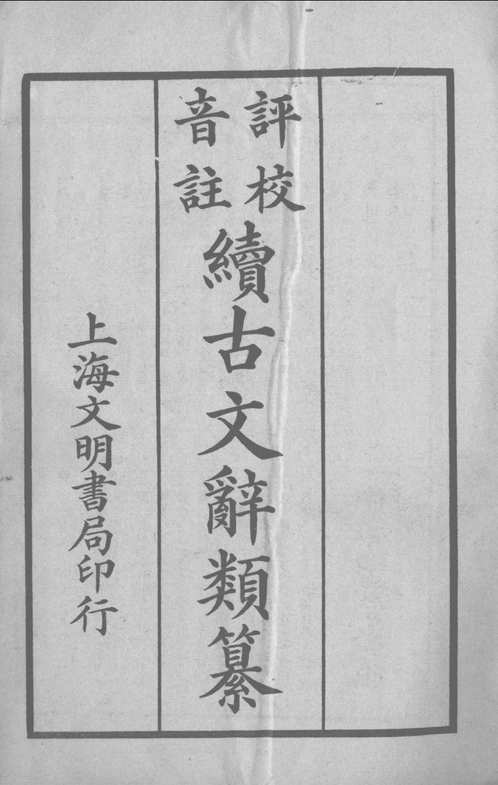 評校
音註
續古文辭類纂
上海文明書局印行